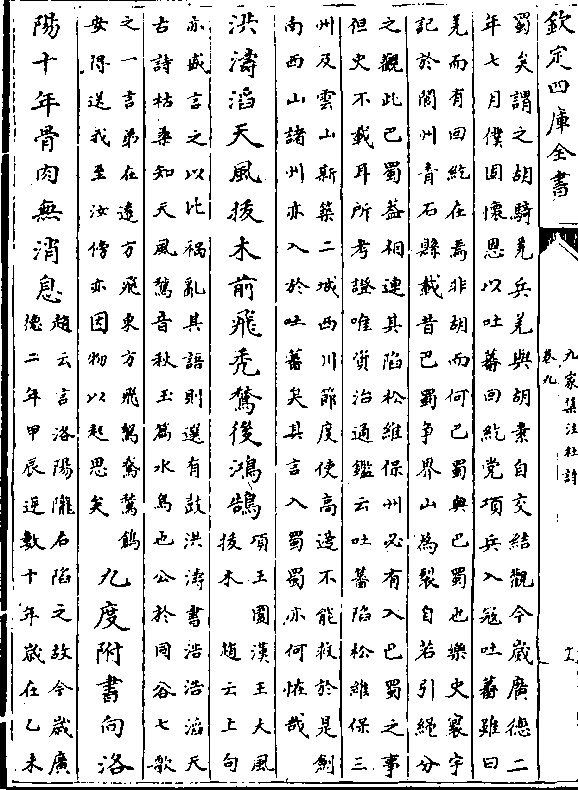 欽定四庫全書
九家集注杜詩
卷九
蜀矣謂之胡騎羌兵羌與胡素自交結觀今歲廣德二
年七月僕固懷恩以吐蕃回紇党項兵入寇吐蕃雖曰
羌而有回紇在焉非胡而何巴蜀與巴蜀也樂史寰宇
記於閬州青石縣載昔巴蜀爭界山為裂自若引繩分
之觀此巴蜀益相連其陷松維保州必有入巴蜀之事
但史不載耳所考證唯資治通鑑云吐蕃陷松維保三
州及雲山斯築二城西川節度使高適不能救於是劍
南西山諸州亦入於吐蕃矣其言入蜀蜀亦何怪哉
洪濤滔天風拔木前飛禿鶖後鴻鵠
項王圍漢王大風
拔木 趙云上句
亦盛言之以比禍亂其語則選有鼓洪濤書浩浩滔天
古詩枯桑知天風鶖音秋玉篇水鳥也公於同谷七歌
之一言弟在遠方飛東方飛駕鵞鶖鶬
安得送我至汝傍亦因物以起思矣
九度附書向洛
陽十年骨肉無消息
趙云言洛陽隴右陷之故今歲廣
德二年甲辰逆數十年歲在乙未